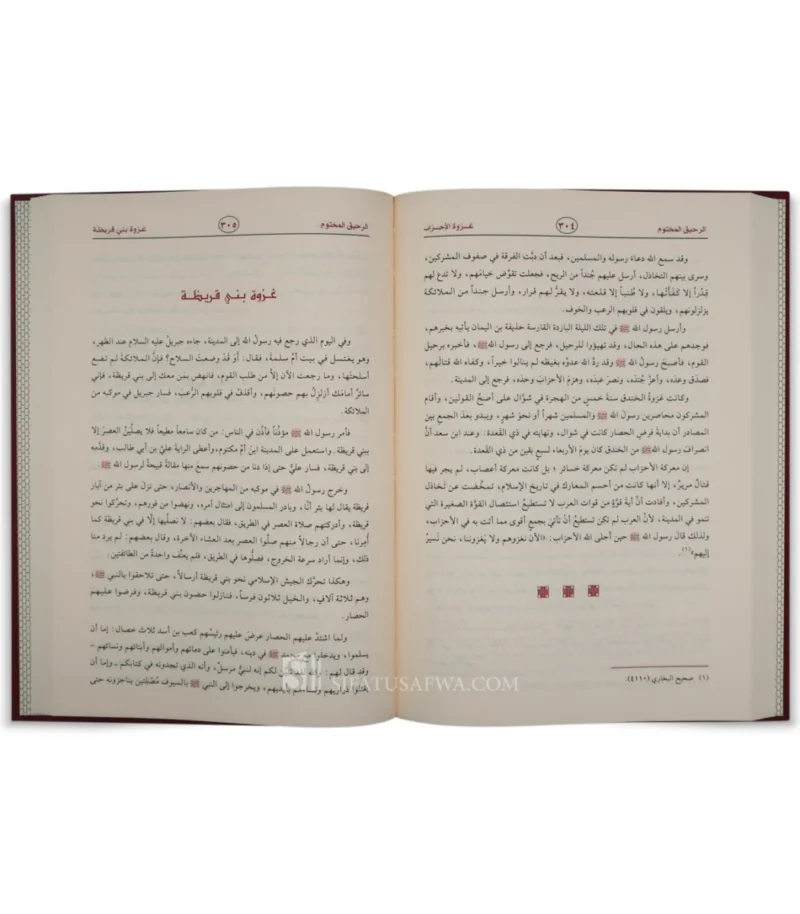 الرحيق المختوم ٣٠٤ غزوة الأحزاب
وقد سمع الله دعاء رسوله والمسلمين، فبعد أن دبَّت الفرقة في صفوف المشركين،
وسرى بينهم التخاذل، أرسل عليهم جُنداً من الريح، فجعلت تقوِّض خيامهم، ولا تدع لهم
قِدْراً إلا كَفَأَتْها، ولا طُنباً إلا قلعته، ولا يقرُّ لهم قرار، وأرسل جنداً من الملائكة
يزلزلونهم، ويلقون في قلوبهم الرعب والخوف.
وأرسل رسول الله ﷺ في تلك الليلة الباردة القارسة حذيفة بن اليمان يأتيه بخبرهم،
فوجدهم على هذه الحال، وقد تهيؤوا للرحيل، فرجع إلى رسول الله ﷺ، فأخبره برحيل
القوم، فأصبح رسولُ الله ﷺ وقد ردَّ الله عدوَّه بغيظه لم ينالوا خيراً، وكفاه الله قتالَهم،
فصدَق وعدَه، وأعزَّ جُندَه، ونصرَ عبدَه، وهزمَ الأحزابَ وحدَه، فرجع إلى المدينة.
وكانت غزوةُ الخندق سنةَ خمسٍ من الهجرة في شوَّال على أصحِّ القولين، وأقام
المشركون محاصرين رسول الله ﷺ والمسلمين شهراً أو نحوَ شهرٍ، ويبدو بعدَ الجمع بين
المصادر أن بدايةَ فرض الحصار كانت في شوال، ونهايته في ذي القعدة. وعند ابن سعد أنَّ
انصراف رسول الله ﷺ من الخندق كان يومَ الأربعاء لسبعٍ بقين من ذي القَعدة.
إن معركة الأحزاب لم تكن معركة خسائر؛ بل كانت معركة أعصاب، لم يجرِ فيها
قتالٌ مريرٌ، إلا أنها كانت من أحسم المعارك في تاريخ الإسلام، تمخَّضت عن تخاذل
المشركين، وأفادت أنَّ أيةَ قوَّةٍ من قوات العرب لا تستطيعُ استئصالَ القوَّةِ الصغيرة التي
تنمو في المدينة، لأنَّ العرب لم تكن تستطيعُ أنْ تأتيَ بجمعٍ أقوى مما أتت به في الأحزاب،
ولذلك قالَ رسول الله ﷺ حين أجلى الله الأحزاب: «الآن نغزوهم ولا يَغزوننا، نحن نَسيرُ
إليهم»(١).
(١) صحيح البخاري (٤١١٠).
الرحيق المختوم ٣٠٥ غزوة بني قريظة
غزوة بني قريظة
وفي اليوم الذي رجع فيه رسولُ الله إلى المدينة، جاءه جبريلُ عليه السلام عند الظهر،
وهو يغتسل في بيت أمِّ سلمةَ، فقال: أوَ قَدْ وضعتَ السلاح؟ فإنَّ الملائكةَ لم تضع
أسلحتَها، وما رجعت الآن إلا من طلب القوم، فانهض بمَن معك إلى بني قريظة، فإني
سائرٌ أمامَك أزلزلُ بهم حصونَهم، وأقذفُ في قلوبهم الرُّعبَ، فسار جبريل في موكبه من
الملائكة.
فأمر رسول الله ﷺ مؤذِّناً فأذَّن في الناس: من كان سامعاً مطيعاً فلا يصلِّينَّ العصرَ إلا
ببني قريظة. واستعمل على المدينة ابنَ أمِّ مكتوم، وأعطى الرايةَ عليَّ بن أبي طالب، وقدَّمه
إلى بني قريظة، فسار عليٌّ حتى إذا دنا من حصونهم سمعَ منها مقالةً قبيحةً لرسول الله ﷺ.
وخرج رسولُ الله ﷺ في موكبه من المهاجرين والأنصار، حتى نزلَ على بئرٍ من آبار
قريظة يقال لها بئر أنَّا، وبادر المسلمون إلى امتثال أمره، ونهضوا من فورهم، وتحرَّكوا نحو
قريظة، وأدركتهم صلاة العصر في الطريق، فقال بعضهم: لا نصلِّيها إلَّا في بني قريظة كما
أُمرنا، حتى أن رجالاً منهم صلَّوا العصر بعد العشاء الآخرة، وقال بعضهم: لم يرد منا
ذلك، وإنما أراد سرعة الخروج، فصلَّوها في الطريق، فلم يعنِّف واحدةً من الطائفتين.
وهكذا تحرَّك الجيش الإسلامي نحو بني قريظة أرسالاً، حتى تلاحقوا بالنبي ﷺ،
وهم ثلاثة آلافٍ، والخيل ثلاثون فرساً، فنازلوا حصون بني قريظة، وفرضوا عليهم
الحصار.
ولما اشتدَّ عليهم الحصار عرضَ عليهم رئيسُهم كعب بن أسد ثلاث خصال: إما أن
يسلموا، ويدخلوا مع محمد ﷺ في دينه، فيأمنوا على دمائهم وأموالهم وأبنائهم ونسائهم ـ
وقد قال لهم: والله لقد تبيَّن لكم إنه لنبيٌّ مرسلٌ، وأنه الذي تجدونه في كتابكم ـ وإما أن
يقتلوا ذراريهم ونساءهم بأيديهم، ويخرجوا إلى النبي ﷺ بالسيوف مُصْلِتين يناجزونه حتى
SIFATUSAFWA.COM